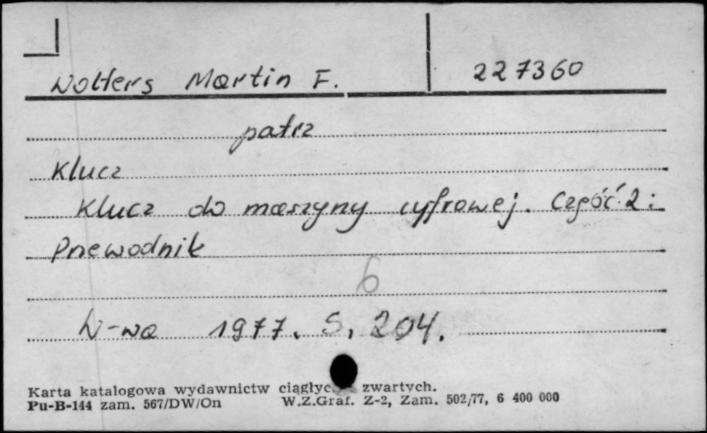 Wolters Martin F. 227360
patrz
Klucz
Klucz do maszyny cyfrowej. Część 2:
Przewodnik
6
W-wa 1977. S. 204.
Karta katalogowa wydawnictw ciągłyc zwartych.
Pu-B-144 zam. 567/DW/On W.Z.Graf. Z-2, Zam. 502/77, 6 400 000